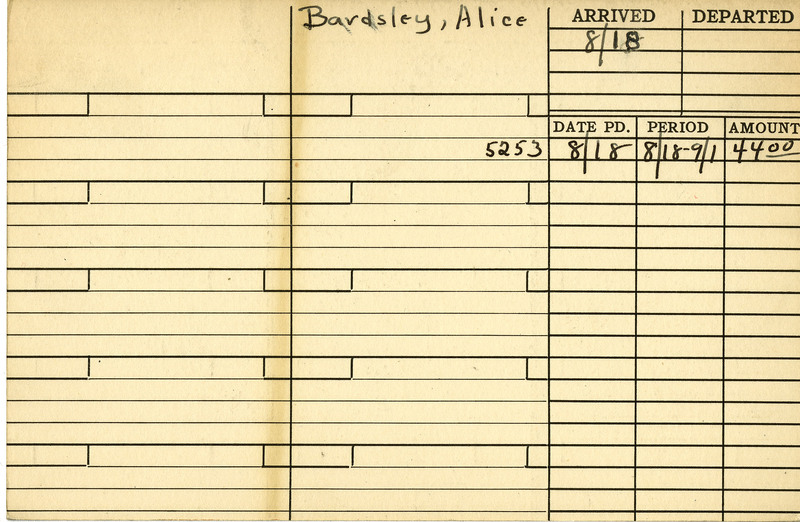 Bardsley, Alice
ARRIVED DEPARTED
8/18
DATE PD. PERIOD AMOUNT
5253 8/18 8/18-9/1 44 00